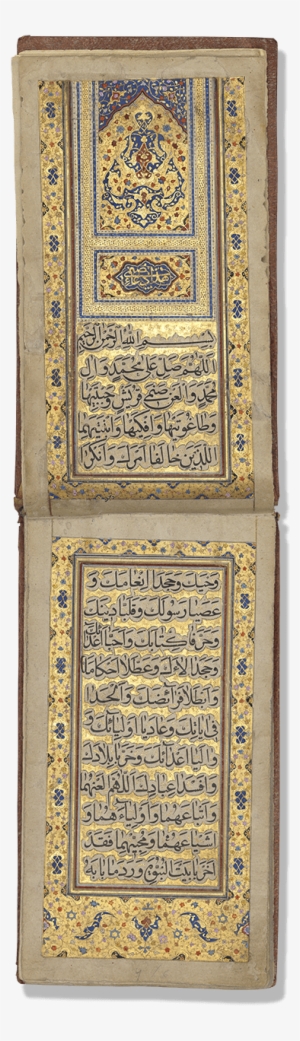 بسم الله الرحمن الرحيم
اللهم صل على محمد وآل
محمد والعن صنمي قريش وجبتيها
وطاغوتيها وافكيها وابنتيهما
اللذين خالفا امرك وانكرا
وحيك وجحدا انعامك و
عصيا رسولك وقلبا دينك
وحرفا كتابك واحبا اعدائك
وجحدا آلائك وعطلا احكامك
وابطلا فرائضك والحدا
في اياتك وعاديا اوليائك و
واليا اعدائك وخربا بلادك
وافسدا عبادك اللهم العنهما
واتباعهما واولياءهما و
اشياعهما ومحبيهما فقد
اخربا بيت النبوة وردما بابه